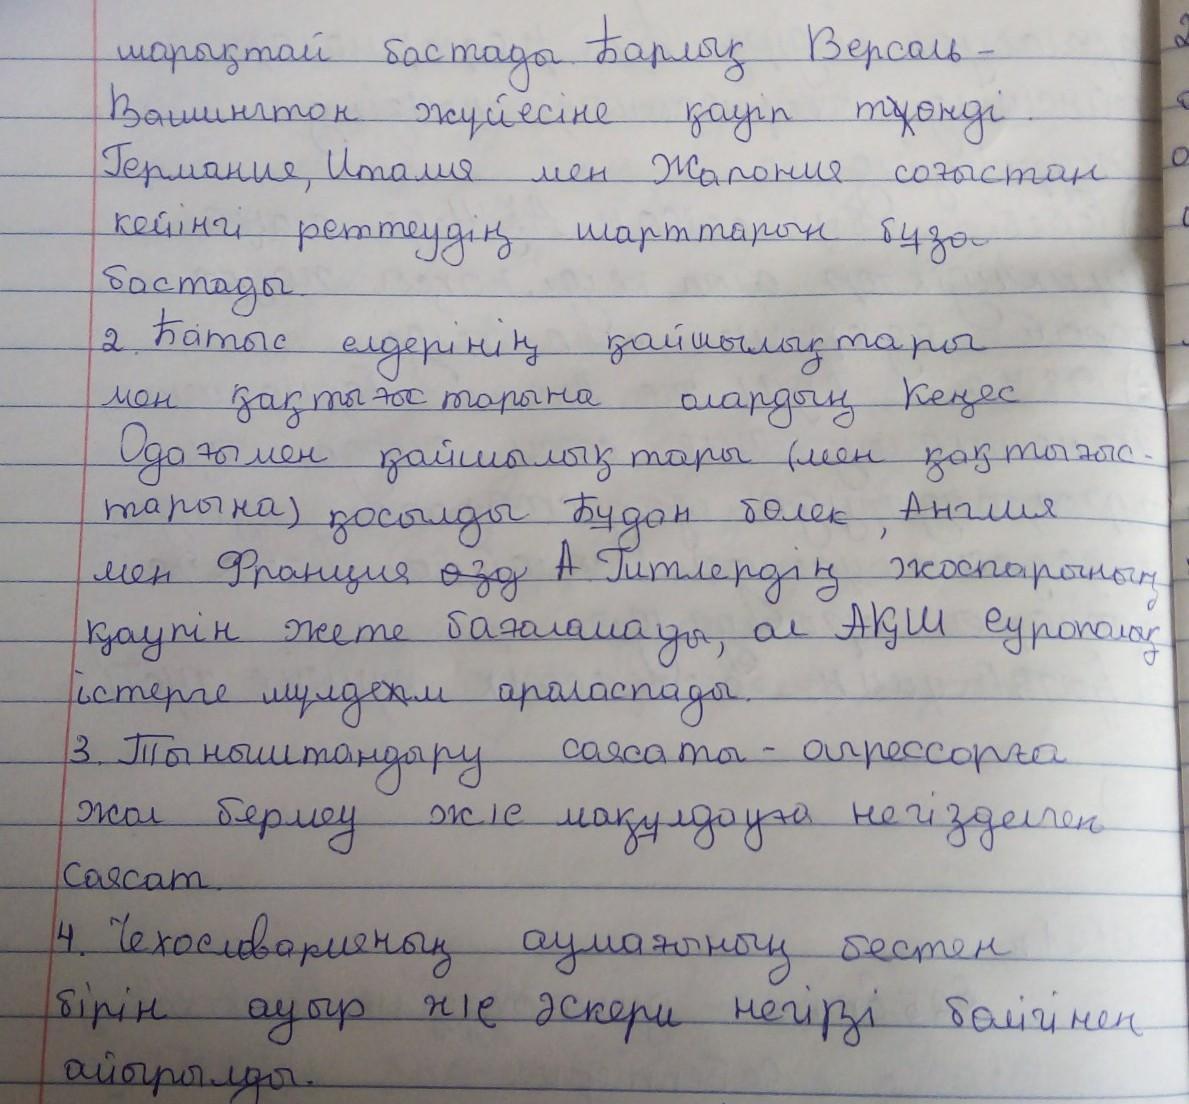 шарықтай бастады. Барлық Версаль-
Вашингтон жүйесіне қауіп төнді.
Германия, Италия мен Жапония соғыстан
кейінгі реттеудің шарттарын бұза
бастады.
2. Батыс елдерінің қайшылықтары
мен қақтығыстарына олардың Кеңес
Одағымен қайшылықтары (мен қақтығыс-
тарына) қосылды Бұдан бөлек, Англия
мен Франция өзд А. Гитлердің жоспарының
қаупін жете бағаламады, ал АҚШ еуропалық
істерге мүлдем араласпады.
3. Тыныштандыру саясаты - агрессорға
жол бермеу және мақұлдауға негізделген
саясат.
4. Чехословакияның аумағының бестен
бірін ауыр және әскери негізгі бөлігінен
айырылды.